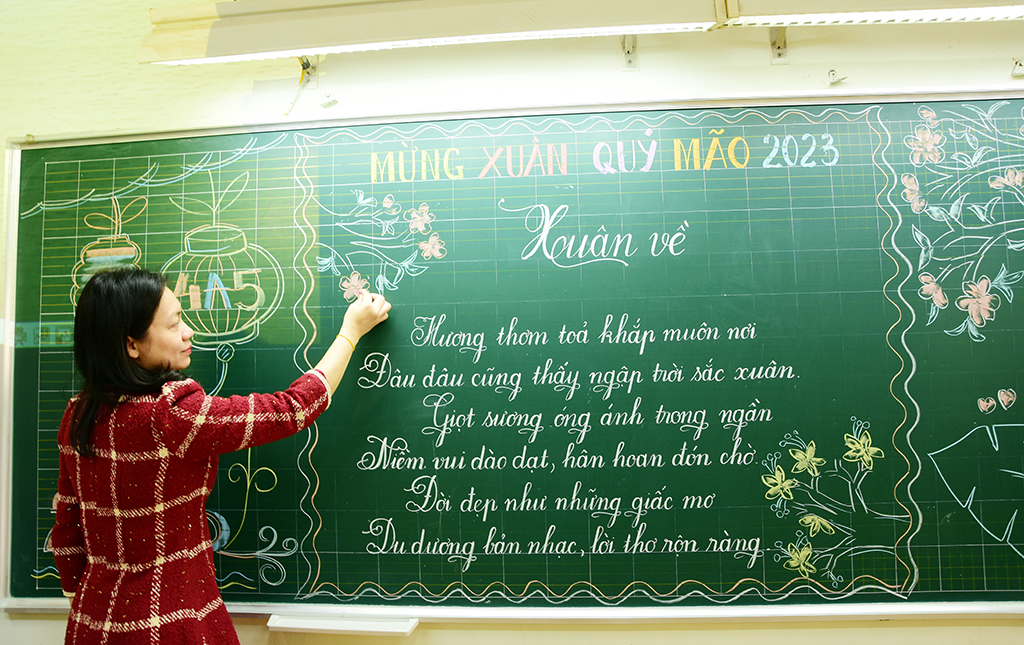 MỪNG XUÂN QUÝ MÃO 2023
4A5
Xuân về
Hương thơm toả khắp muôn nơi
Đâu đâu cũng thấy ngập trời sắc xuân.
Giọt sương óng ánh trong ngần
Niềm vui dào dạt, hân hoan đón chờ.
Đời đẹp như những giấc mơ
Du dương bản nhạc, lời thơ rộn ràng.